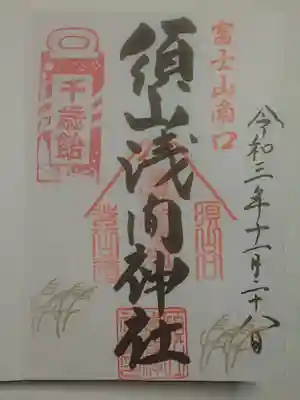 令和三年十一月二十八日
富士山南口
須山浅間神社
須山口
千歳飴